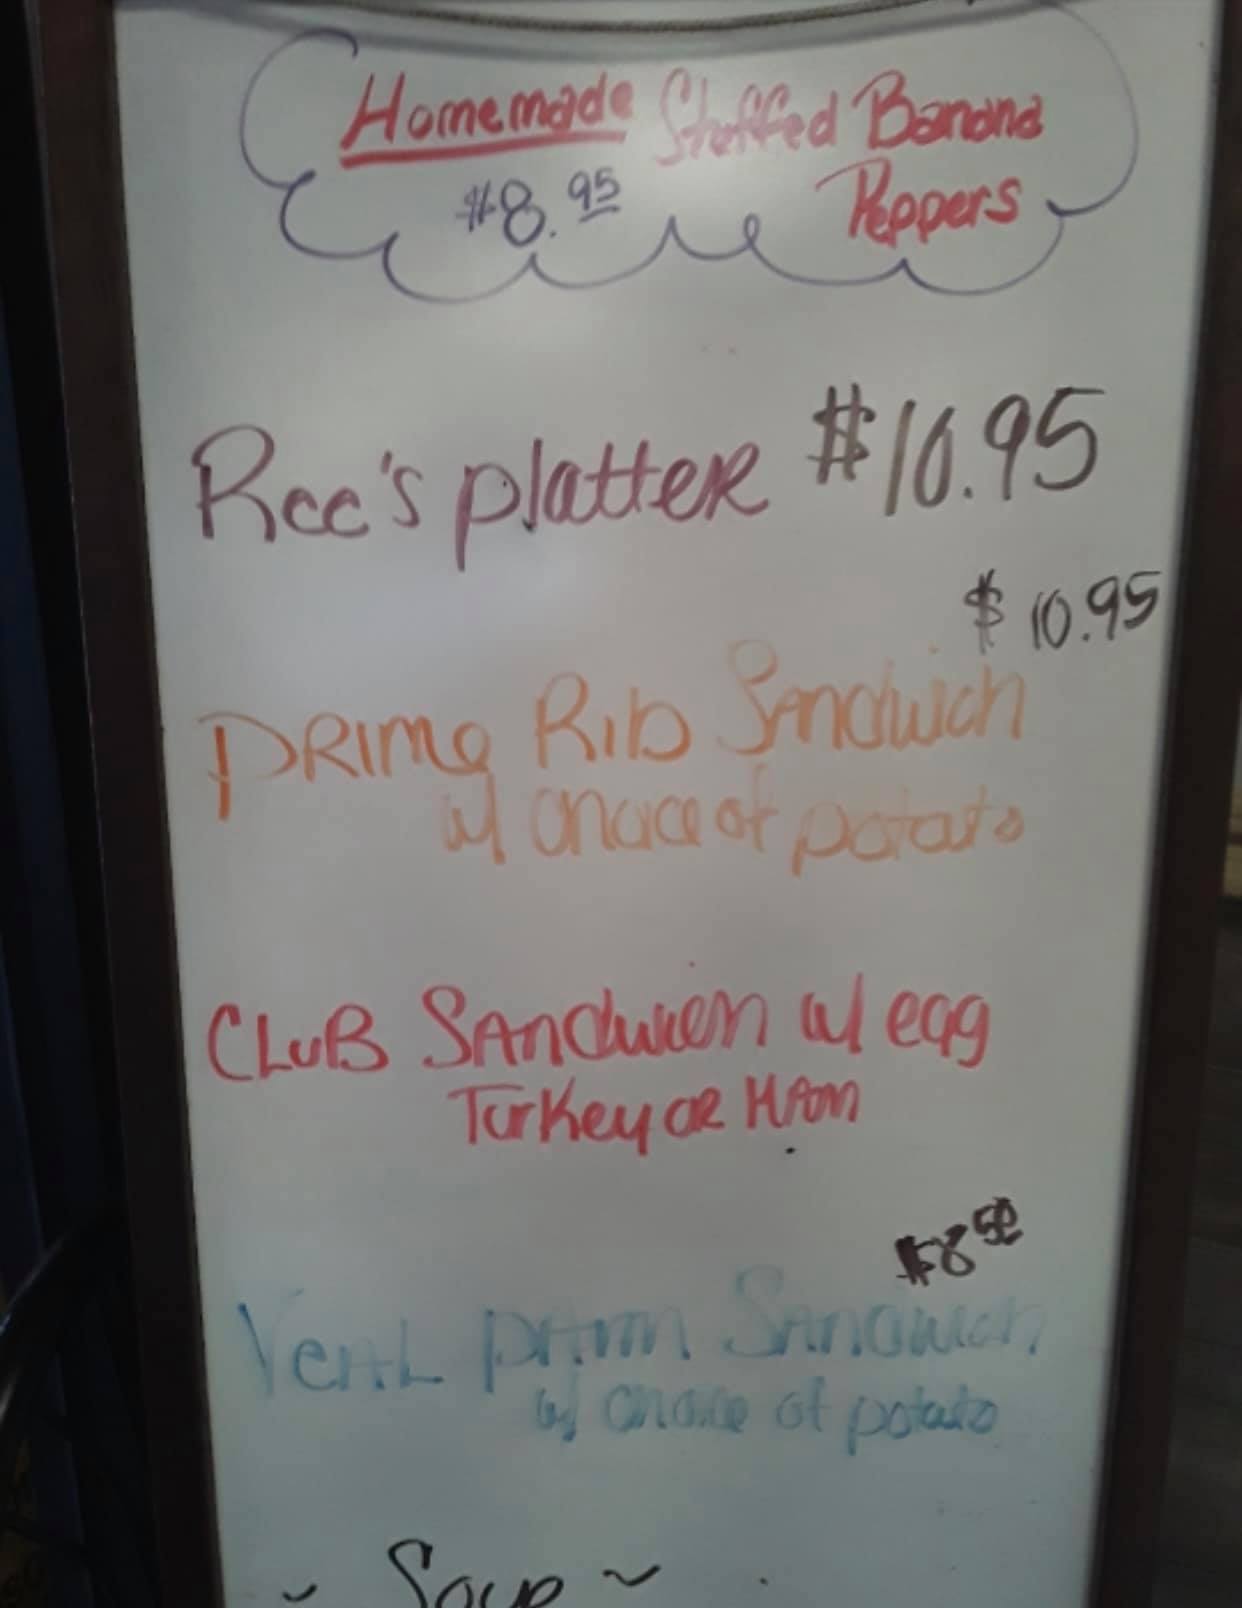 Homemade Stuffed Banana
$8.95 Peppers
Ree's platter $10.95
$10.95
Prime Rib Sandwich
w/ choice of potato
Club Sandwich w/ egg
Turkey or Ham
$8.50
Veal parm Sandwich
w/ choice of potato
~ Soup ~